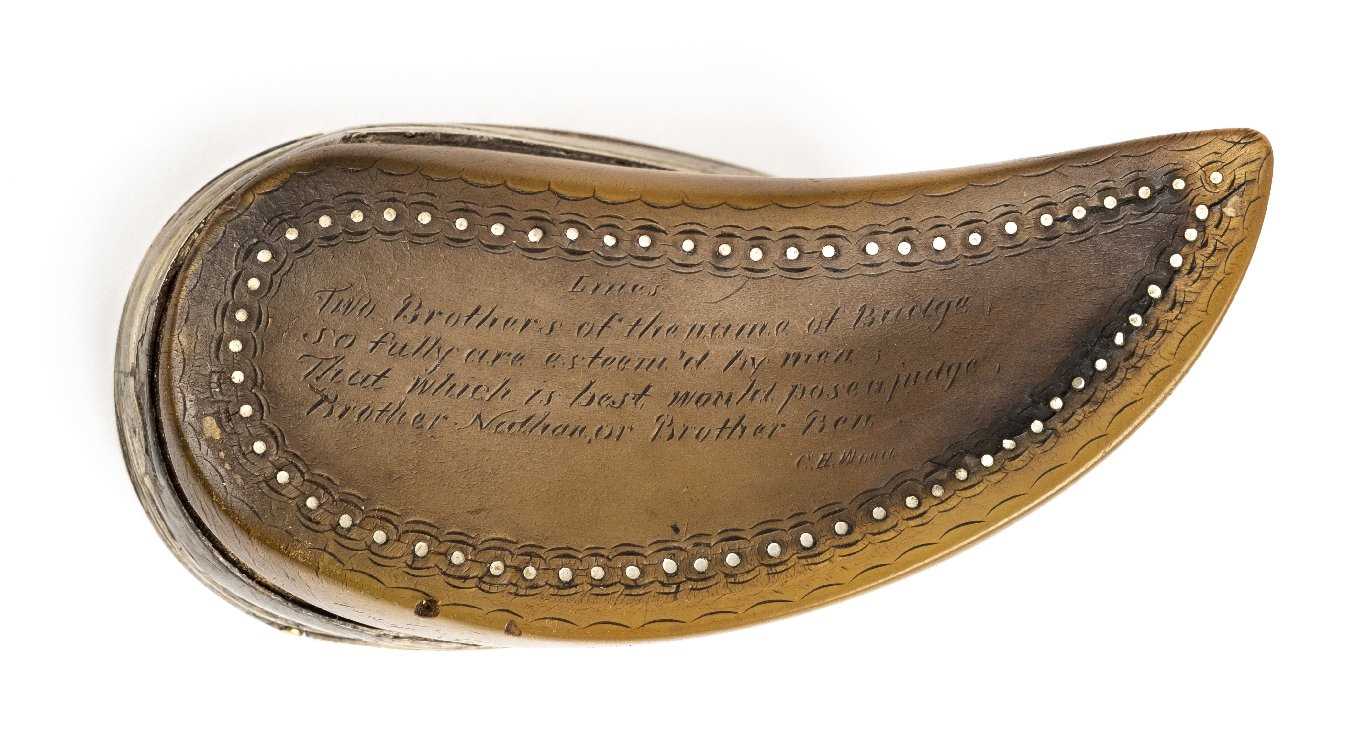 Lines
Two Brothers of the name of Budge,
so fully are esteem'd by men;
That which is best would pose a judge,
Brother Nathan, or Brother Ben
C. H.